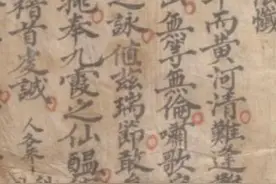 而黃河清難逢
無等無倫嘯歌
之詠值茲瑞節敢
奉九霞之仙醞
稽首虔誠